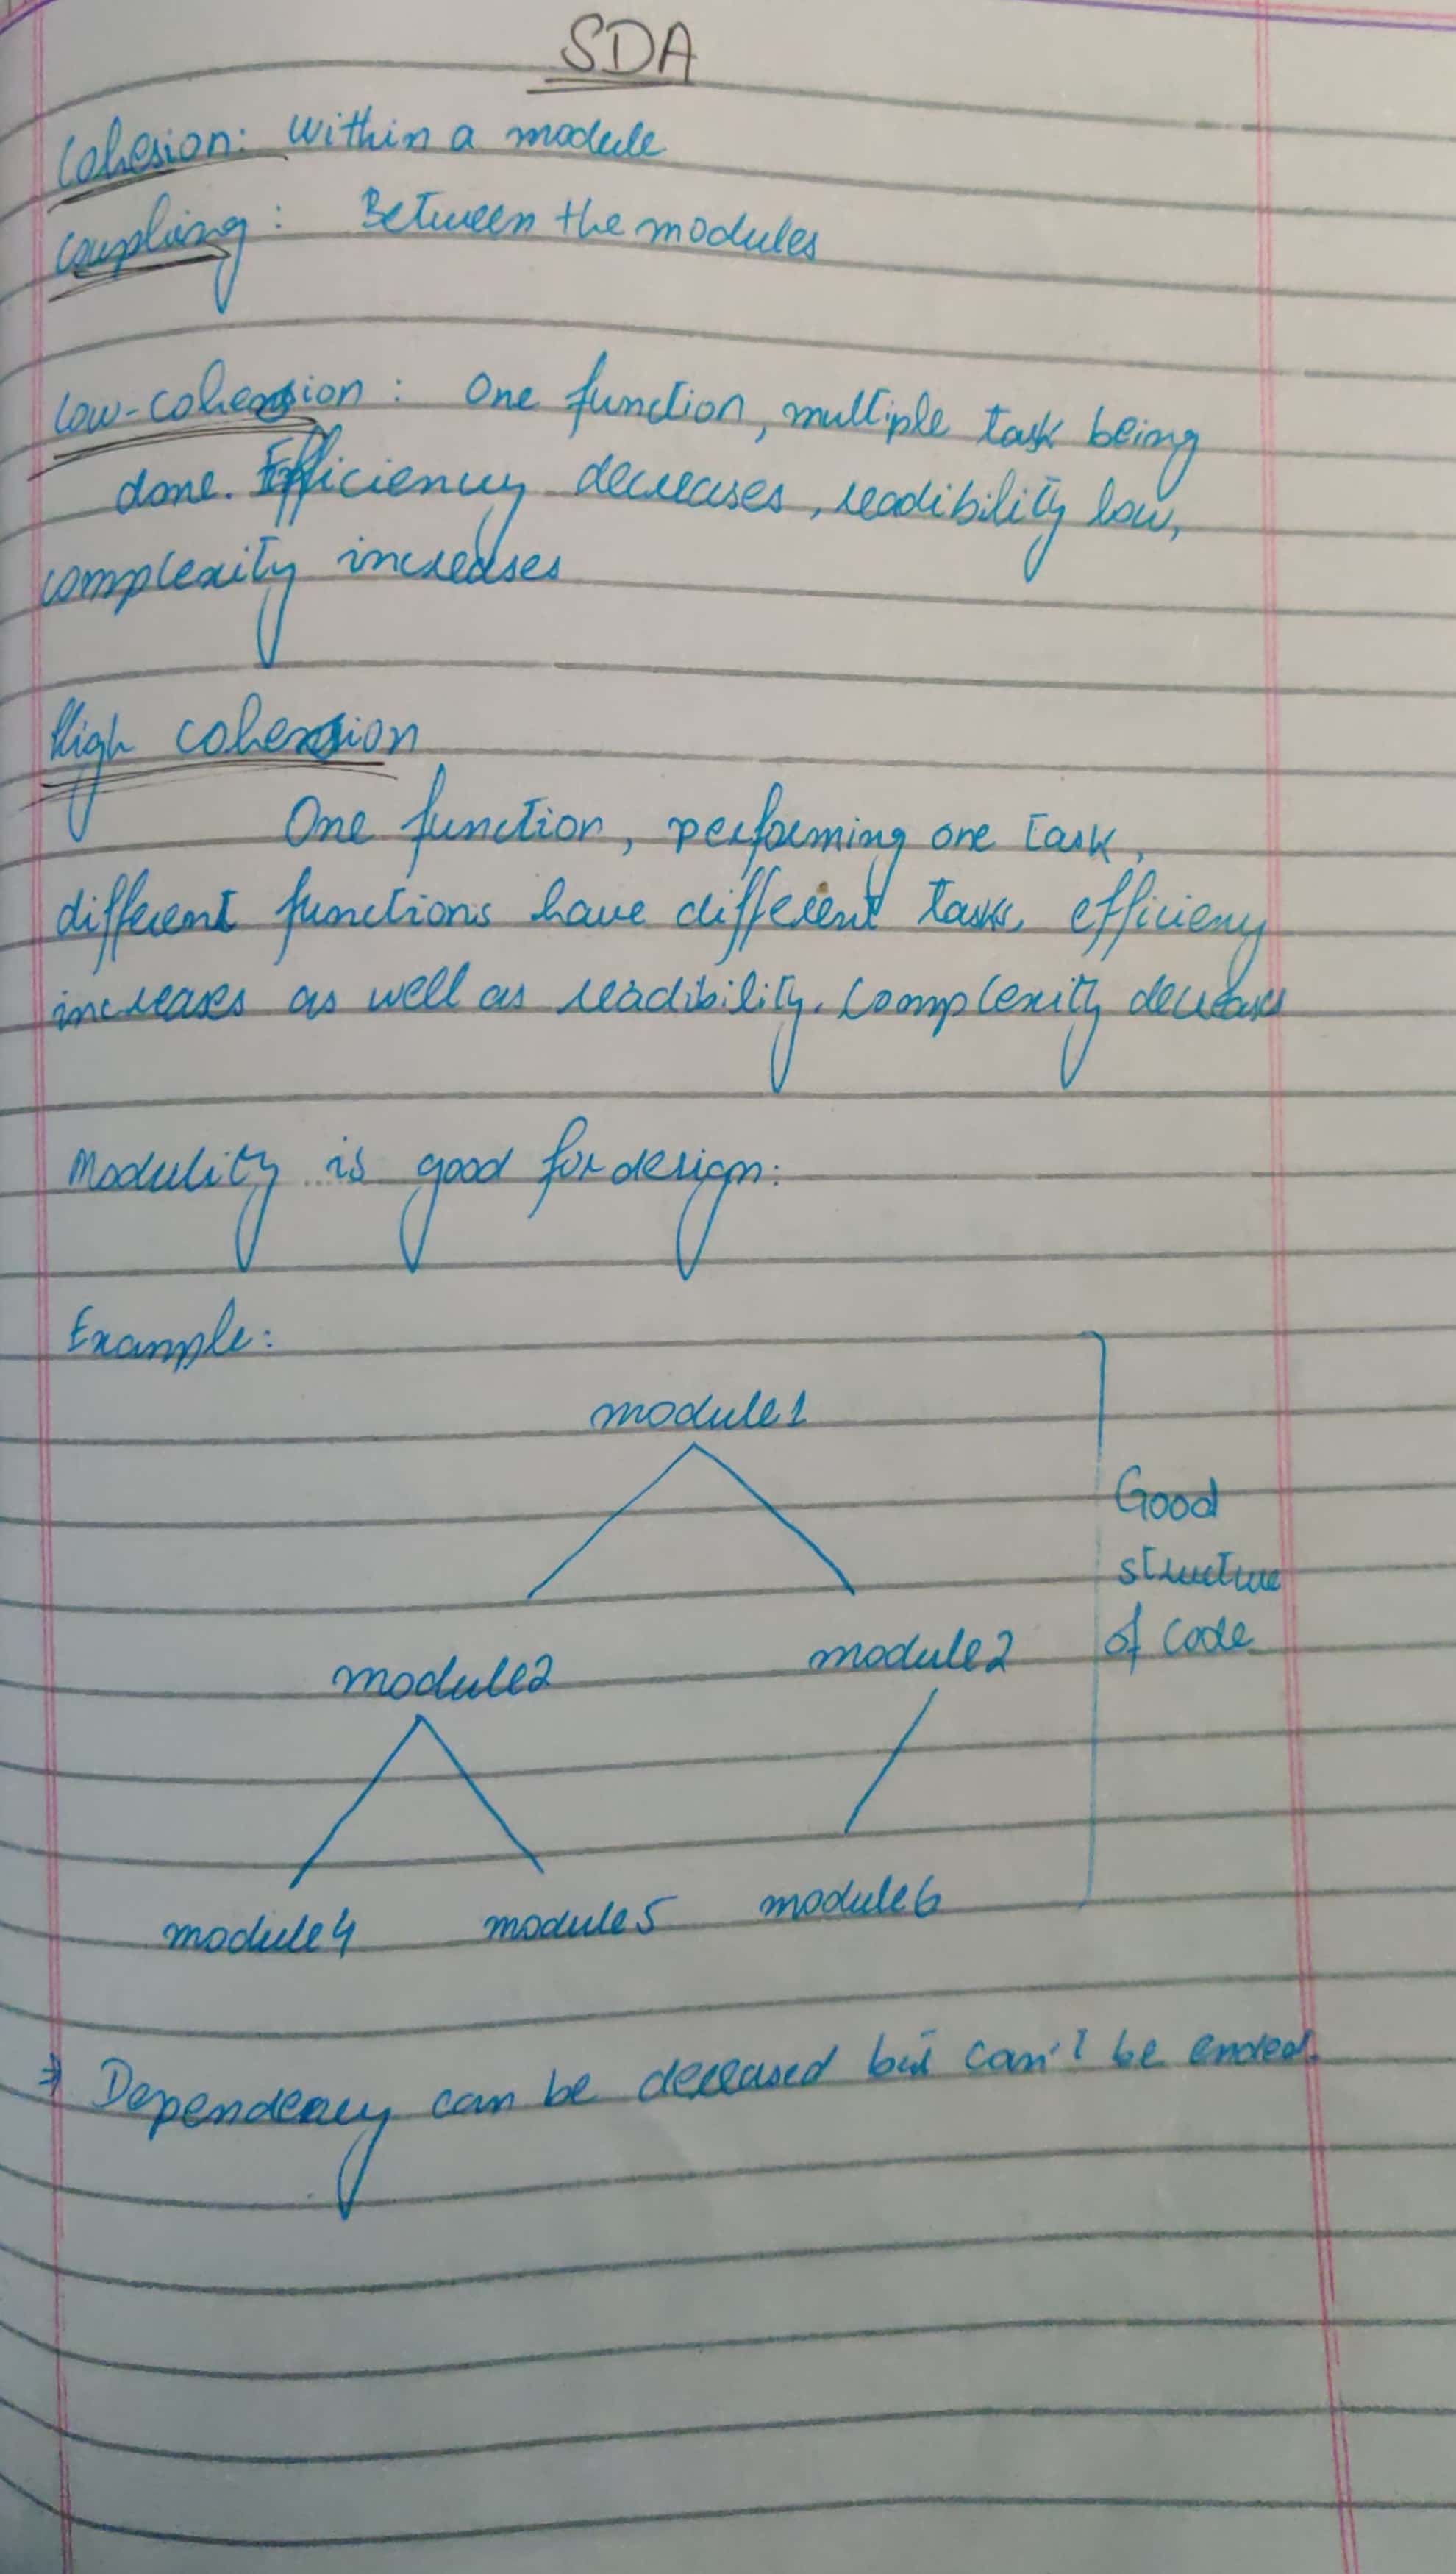 SDA
Cohesion: Within a module
Coupling: Between the modules
Low-cohension: One function, multiple task being
done. Efficiency decreases, readibility low,
complexity increases
High cohension
One function, performing one task,
different functions have different tasks, efficieny
increases as well as readibility. Complexity decreases
Modulity is good for design:
Example:
module1
Good
structure
of code
module2 module2
module4 module5 module6
⇒ Dependency can be decreased but can't be ended.